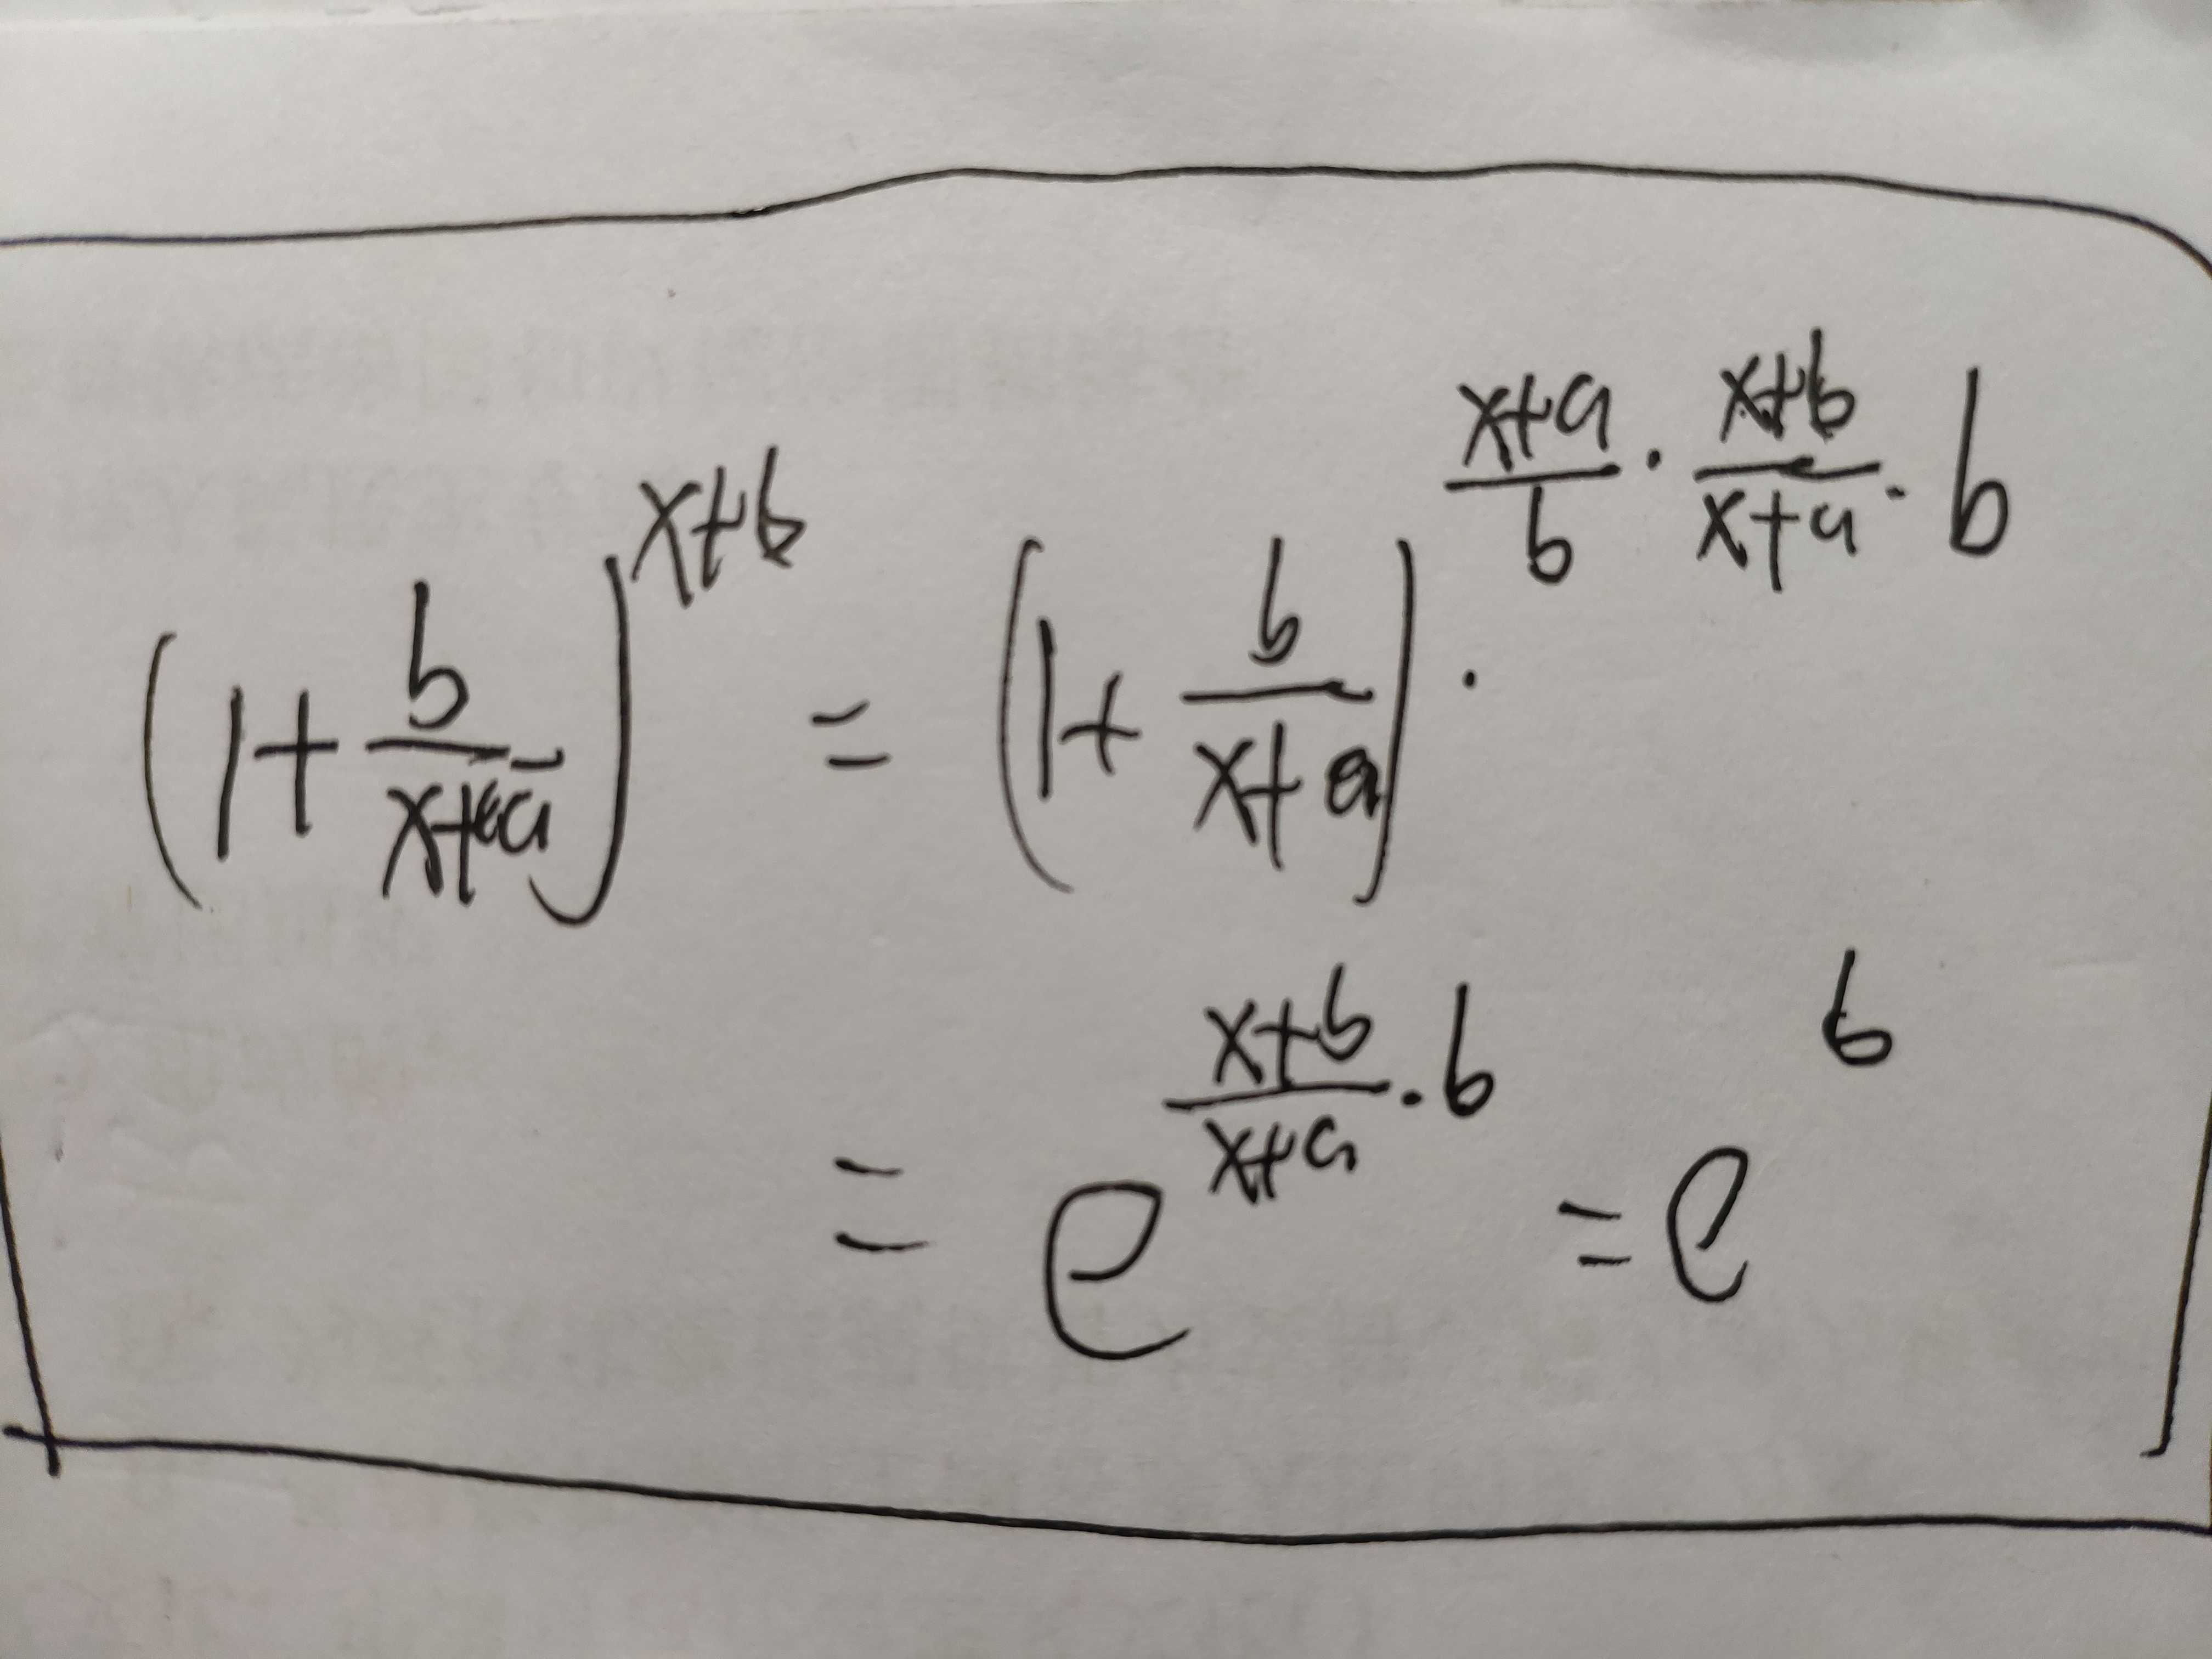 (1+\frac{b}{x+a})^{x+b} = (1+\frac{b}{x+a})^{\frac{x+a}{b}·\frac{x+b}{x+a}·b} ·
= e^{\frac{x+b}{x+a}·b} = e^{b}